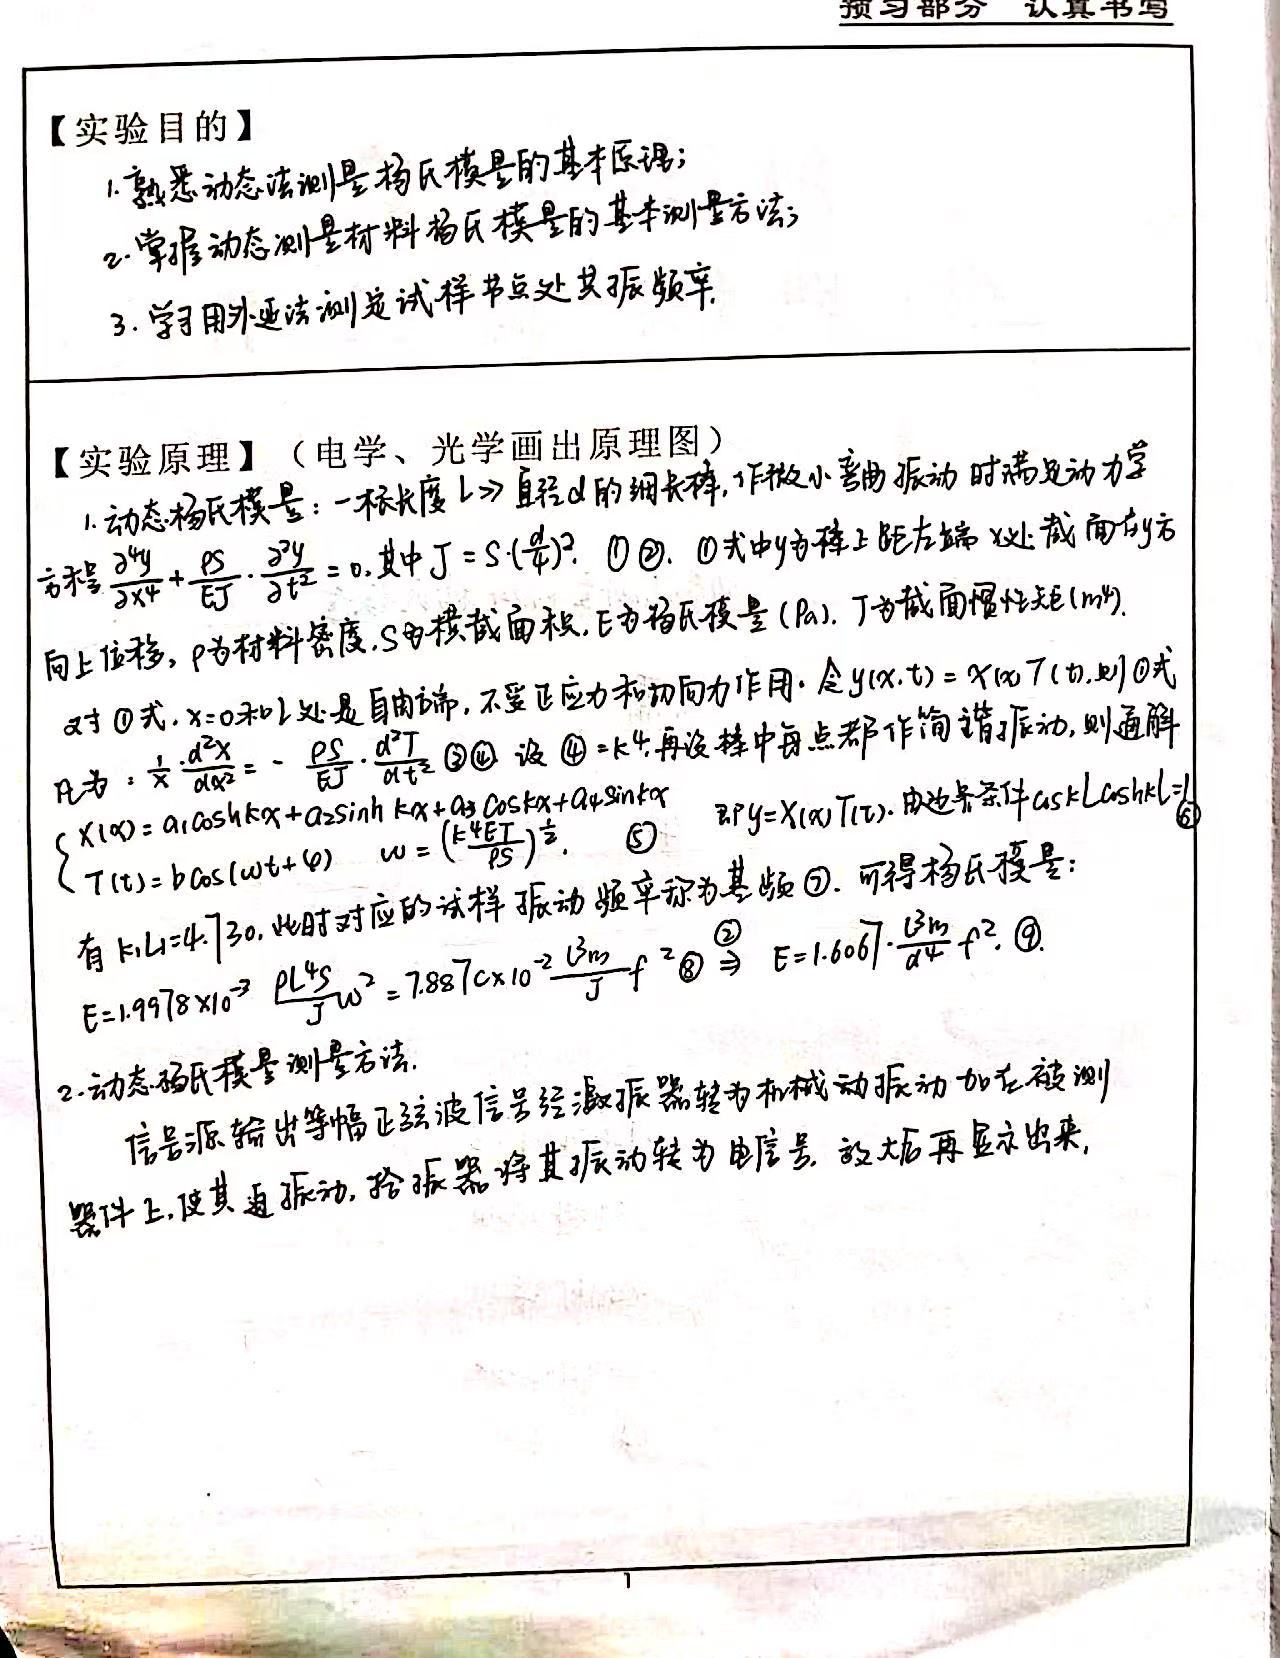 预习部分 认真书写
【实验目的】
1. 熟悉动态法测量杨氏模量的基本原理;
2. 掌握动态测量材料杨氏模量的基本测量方法;
3. 学习用外延法测定试样节点处共振频率.
【实验原理】（电学、光学画出原理图）
1. 动态杨氏模量: 一根长度L≫直径d的细长棒,作微小弯曲振动时满足动力学
方程 ∂⁴y/∂x⁴ + ρS/EJ · ∂²y/∂t² = 0, 其中J = S·(d/4)². ①②. ①式中y为棒上距左端x处截面在y方
向上位移, ρ为材料密度, S为横截面积, E为杨氏模量(Pa). J为截面惯性矩(m⁴).
对①式, x=0和L处是自由端, 不受正应力和切向力作用. 令y(x,t) = X(x)T(t), 则①式
化为: 1/X · d²X/dx² = - ρS/EJ · d²T/dt² ③④ 设④=k⁴, 再设棒中每点都作简谐振动, 则通解
{ X(x) = a₁coshkx + a₂sinh kx + a₃ coskx + a₄sinkx 即y=X(x)T(t). 由边界条件coskLcoshkL=1 ⑥
T(t) = bcos(ωt+φ) ω = (k⁴EJ/ρS)^½. ⑤
有k₁L₁=4.730, 此时对应的试样振动频率称为基频⑦. 可得杨氏模量:
E=1.9978×10⁻³ ρL⁴S/J ω² = 7.8870×10⁻² L³m/J f² ⑧ ②⇒ E=1.6067· L³m/d⁴ f². ⑨.
2. 动态杨氏模量测量方法.
信号源输出等幅正弦波信号经激振器转为机械动振动加在被测
器件上, 使其迫振动, 拾振器将其振动转为电信号, 放大后再显示出来,
1